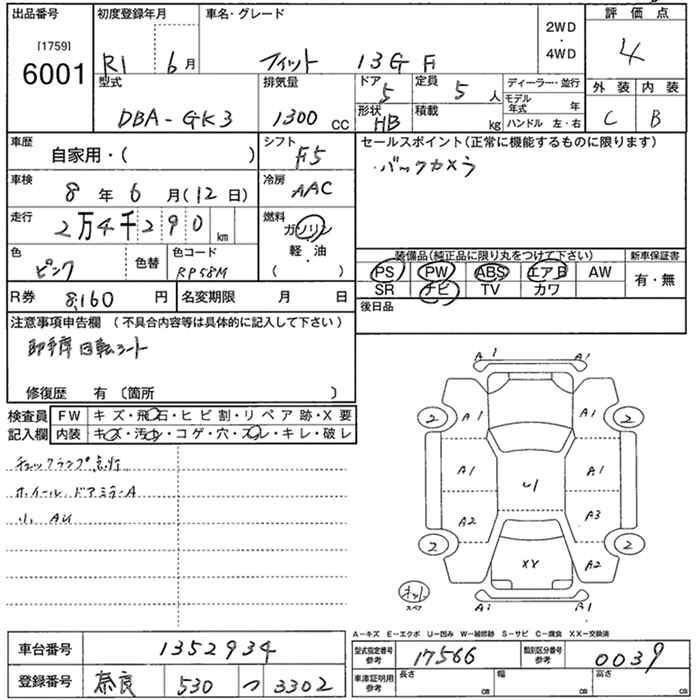 出品番号 初度登録年月 車名・グレード 評価点
[1759]
6001
R1 6月 フィット 13G F
2WD
・
4WD
4
型式 排気量 ドア 定員 ディーラー・並行 外装 内装
DBA-GK3 1300 CC 5 5 人
モデル年式 年
形状 HB 積載 kg ハンドル 左・右
C B
車歴 自家用・( )
シフト F5
セールスポイント(正常に機能するものに限ります)
・バックカメラ
車検 8年 6月(12日)
冷房 AAC
走行 2万4千290 km
燃料 ガソリン
軽・油
( ・ )
色 ピンク 色替 色コード RP58M
装備品(純正品に限り丸をつけて下さい) 新車保証書
PS PW ABS エアB AW
SR ナビ TV カワ
有・無
R券 8,160 円 名変期限 月 日
後日品
注意事項申告欄 (不具合内容等は具体的に記入して下さい)
回転シート
修復歴 有 〔箇所 〕
検査員 FW キズ・飛石・ヒビ割・リペア跡・X要
記入欄 内装 キズ・汚れ・コゲ・穴・スレ・キレ・破レ
チェックランプ点灯
ホイール、ドアミラーA
小 AU
A1 A1
2 A1 A1 2
A1 U1 A1
A2 A3
2 XX A2 2
スペア
A1 B1
A-キズ E-エクボ U-凹み W-補修跡 S-サビ C-腐食 XX-交換済
車台番号 1352934
型式指定番号 参考 17566 類別区分番号 参考 0039
登録番号 奈良 530 つ 3302
車庫証明用 参考 長さ cm 幅 cm 高さ cm